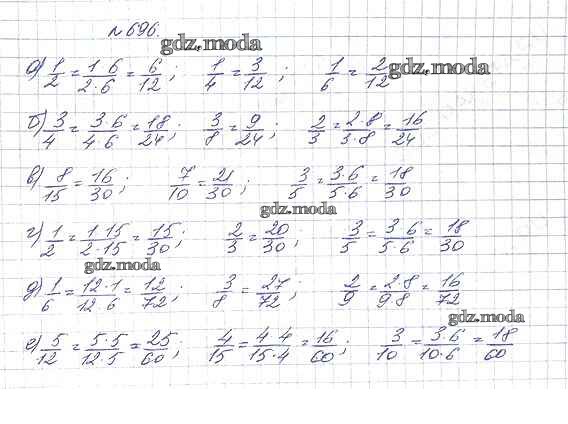 № 696.
gdz.moda
а) 1/2 = 1·6/2·6 = 6/12; 1/4 = 3/12; 1/6 = 2/12 gdz.moda
б) 3/4 = 3·6/4·6 = 18/24; 3/8 = 9/24; 2/3 = 2·8/3·8 = 16/24
в) 8/15 = 16/30; 7/10 = 21/30; 3/5 = 3·6/5·6 = 18/30
gdz.moda
г) 1/2 = 1·15/2·15 = 15/30; 2/3 = 20/30; 3/5 = 3·6/5·6 = 18/30
gdz.moda
д) 1/6 = 12·1/12·6 = 12/72; 3/8 = 27/72; 2/9 = 2·8/9·8 = 16/72
gdz.moda
е) 5/12 = 5·5/12·5 = 25/60; 4/15 = 4·4/15·4 = 16/60; 3/10 = 3·6/10·6 = 18/60